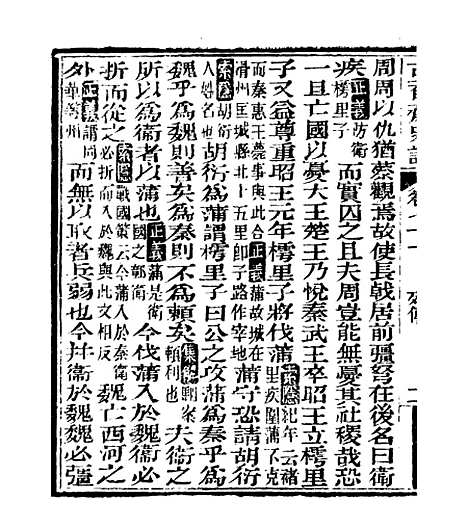 周周以仇猶蔡觀焉故使長戟居前彊弩在後名曰衛
疾正義防衛樗里子而實囚之且夫周豈能無憂其社稷哉恐
一旦亡國以憂大王楚王乃悅秦武王卒昭王立樗里
子又益尊重昭王元年樗里子將伐蒲索隱紀年云褚里疾圍蒲不克
而秦惠王薨事與此合正義蒲故城在滑州匡城縣北十五里卽子路作宰地蒲守恐請胡衍
索隱胡衍人姓名也胡衍為蒲謂樗里子曰公之攻蒲為秦乎為
魏乎為魏則善矣為秦則不為賴矣集解駰案賴利也夫衛之
所以為衛者以蒲也正義蒲是衛國之鄣衛今伐蒲入於魏衛必
折而從之索隱戰國策云今蒲入於秦衛必折而入於魏與此文相反魏亡西河之
外正義謂同華等州而無以取者兵弱也今并衛於魏魏必彊